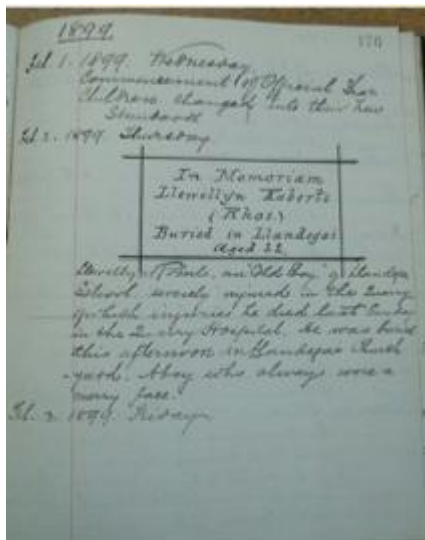 1899.
176
Feb 1. 1899. Wednesday
Commencement of Official Year
Children changed into their New
Standards
Feb 2. 1899 Thursday
In Memoriam
Llewellyn Roberts
(Rhos)
Buried in Llandegai
Aged 22
Llewellyn Roberts, an "Old Boy" of Llandegai
School, severely injured in the Quarry
of which injuries he died last
in the Quarry Hospital. He was buried
this afternoon in Llandegai Church
-yard. A boy who always wore a
merry face.
Feb. 3. 1899. Friday